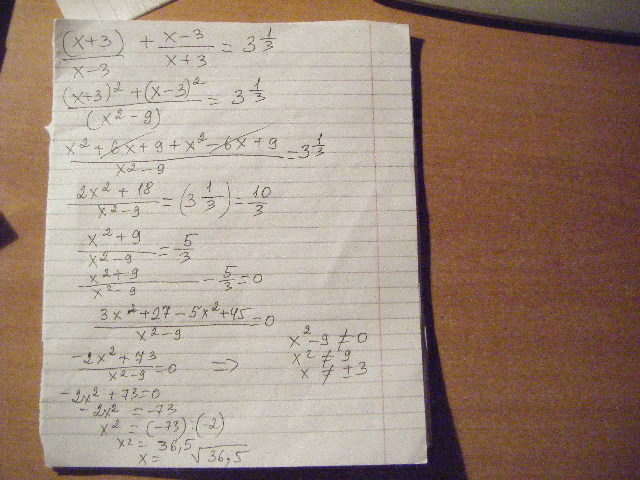 (x+3)/(x-3) + (x-3)/(x+3) = 3 1/3
((x+3)² + (x-3)²)/(x²-9) = 3 1/3
(x² + 6x + 9 + x² - 6x + 9)/(x²-9) = 3 1/3
(2x² + 18)/(x²-9) = (3 1/3) = 10/3
(x² + 9)/(x²-9) = 5/3
(x² + 9)/(x²-9) - 5/3 = 0
(3x² + 27 - 5x² + 45)/(x²-9) = 0
(-2x² + 73)/(x²-9) = 0 => x² - 9 ≠ 0
x² ≠ 9
x ≠ ±3
-2x² + 73 = 0
-2x² = -73
x² = (-73) : (-2)
x² = 36,5
x = √36,5